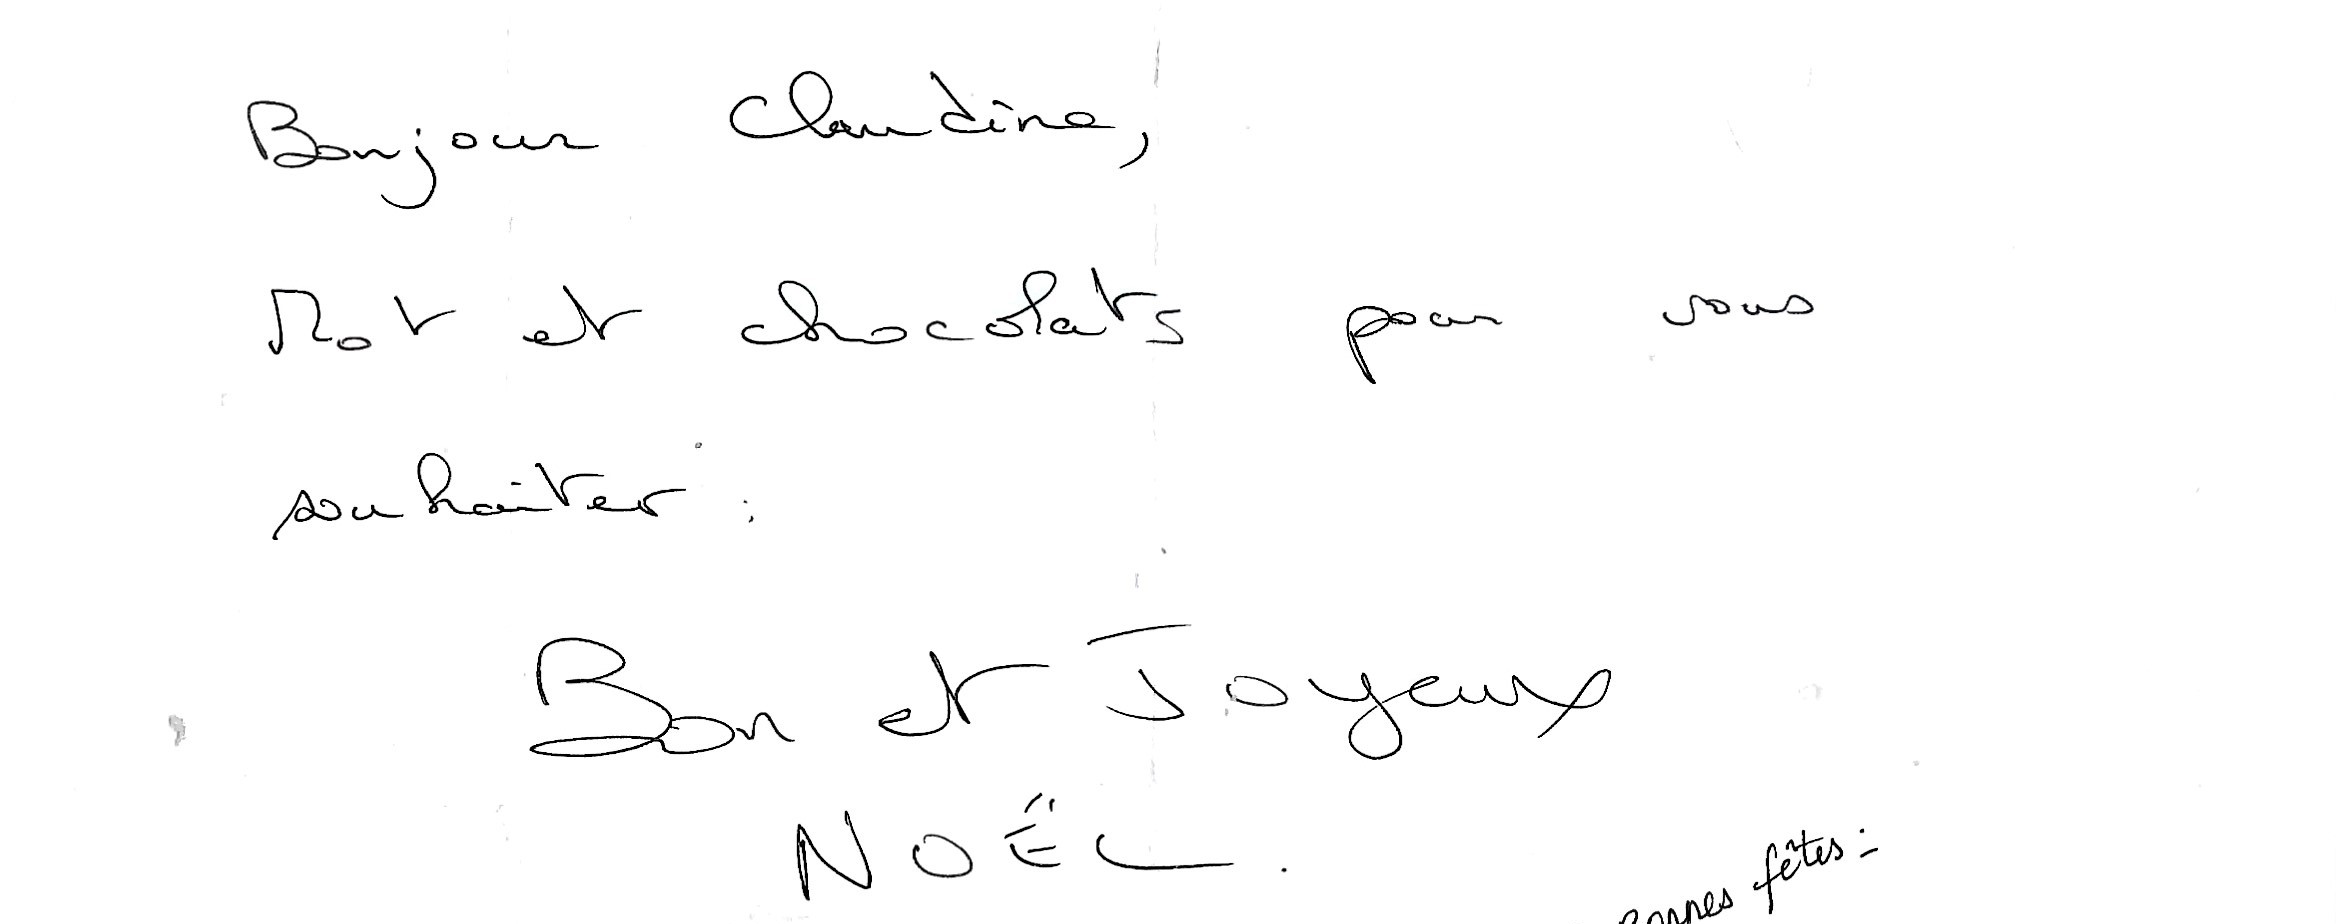 Bonjour Claudine,
Mot et chocolats pour vous
souhaiter :
Bon et Joyeux
NOËL.
Bonnes fêtes :